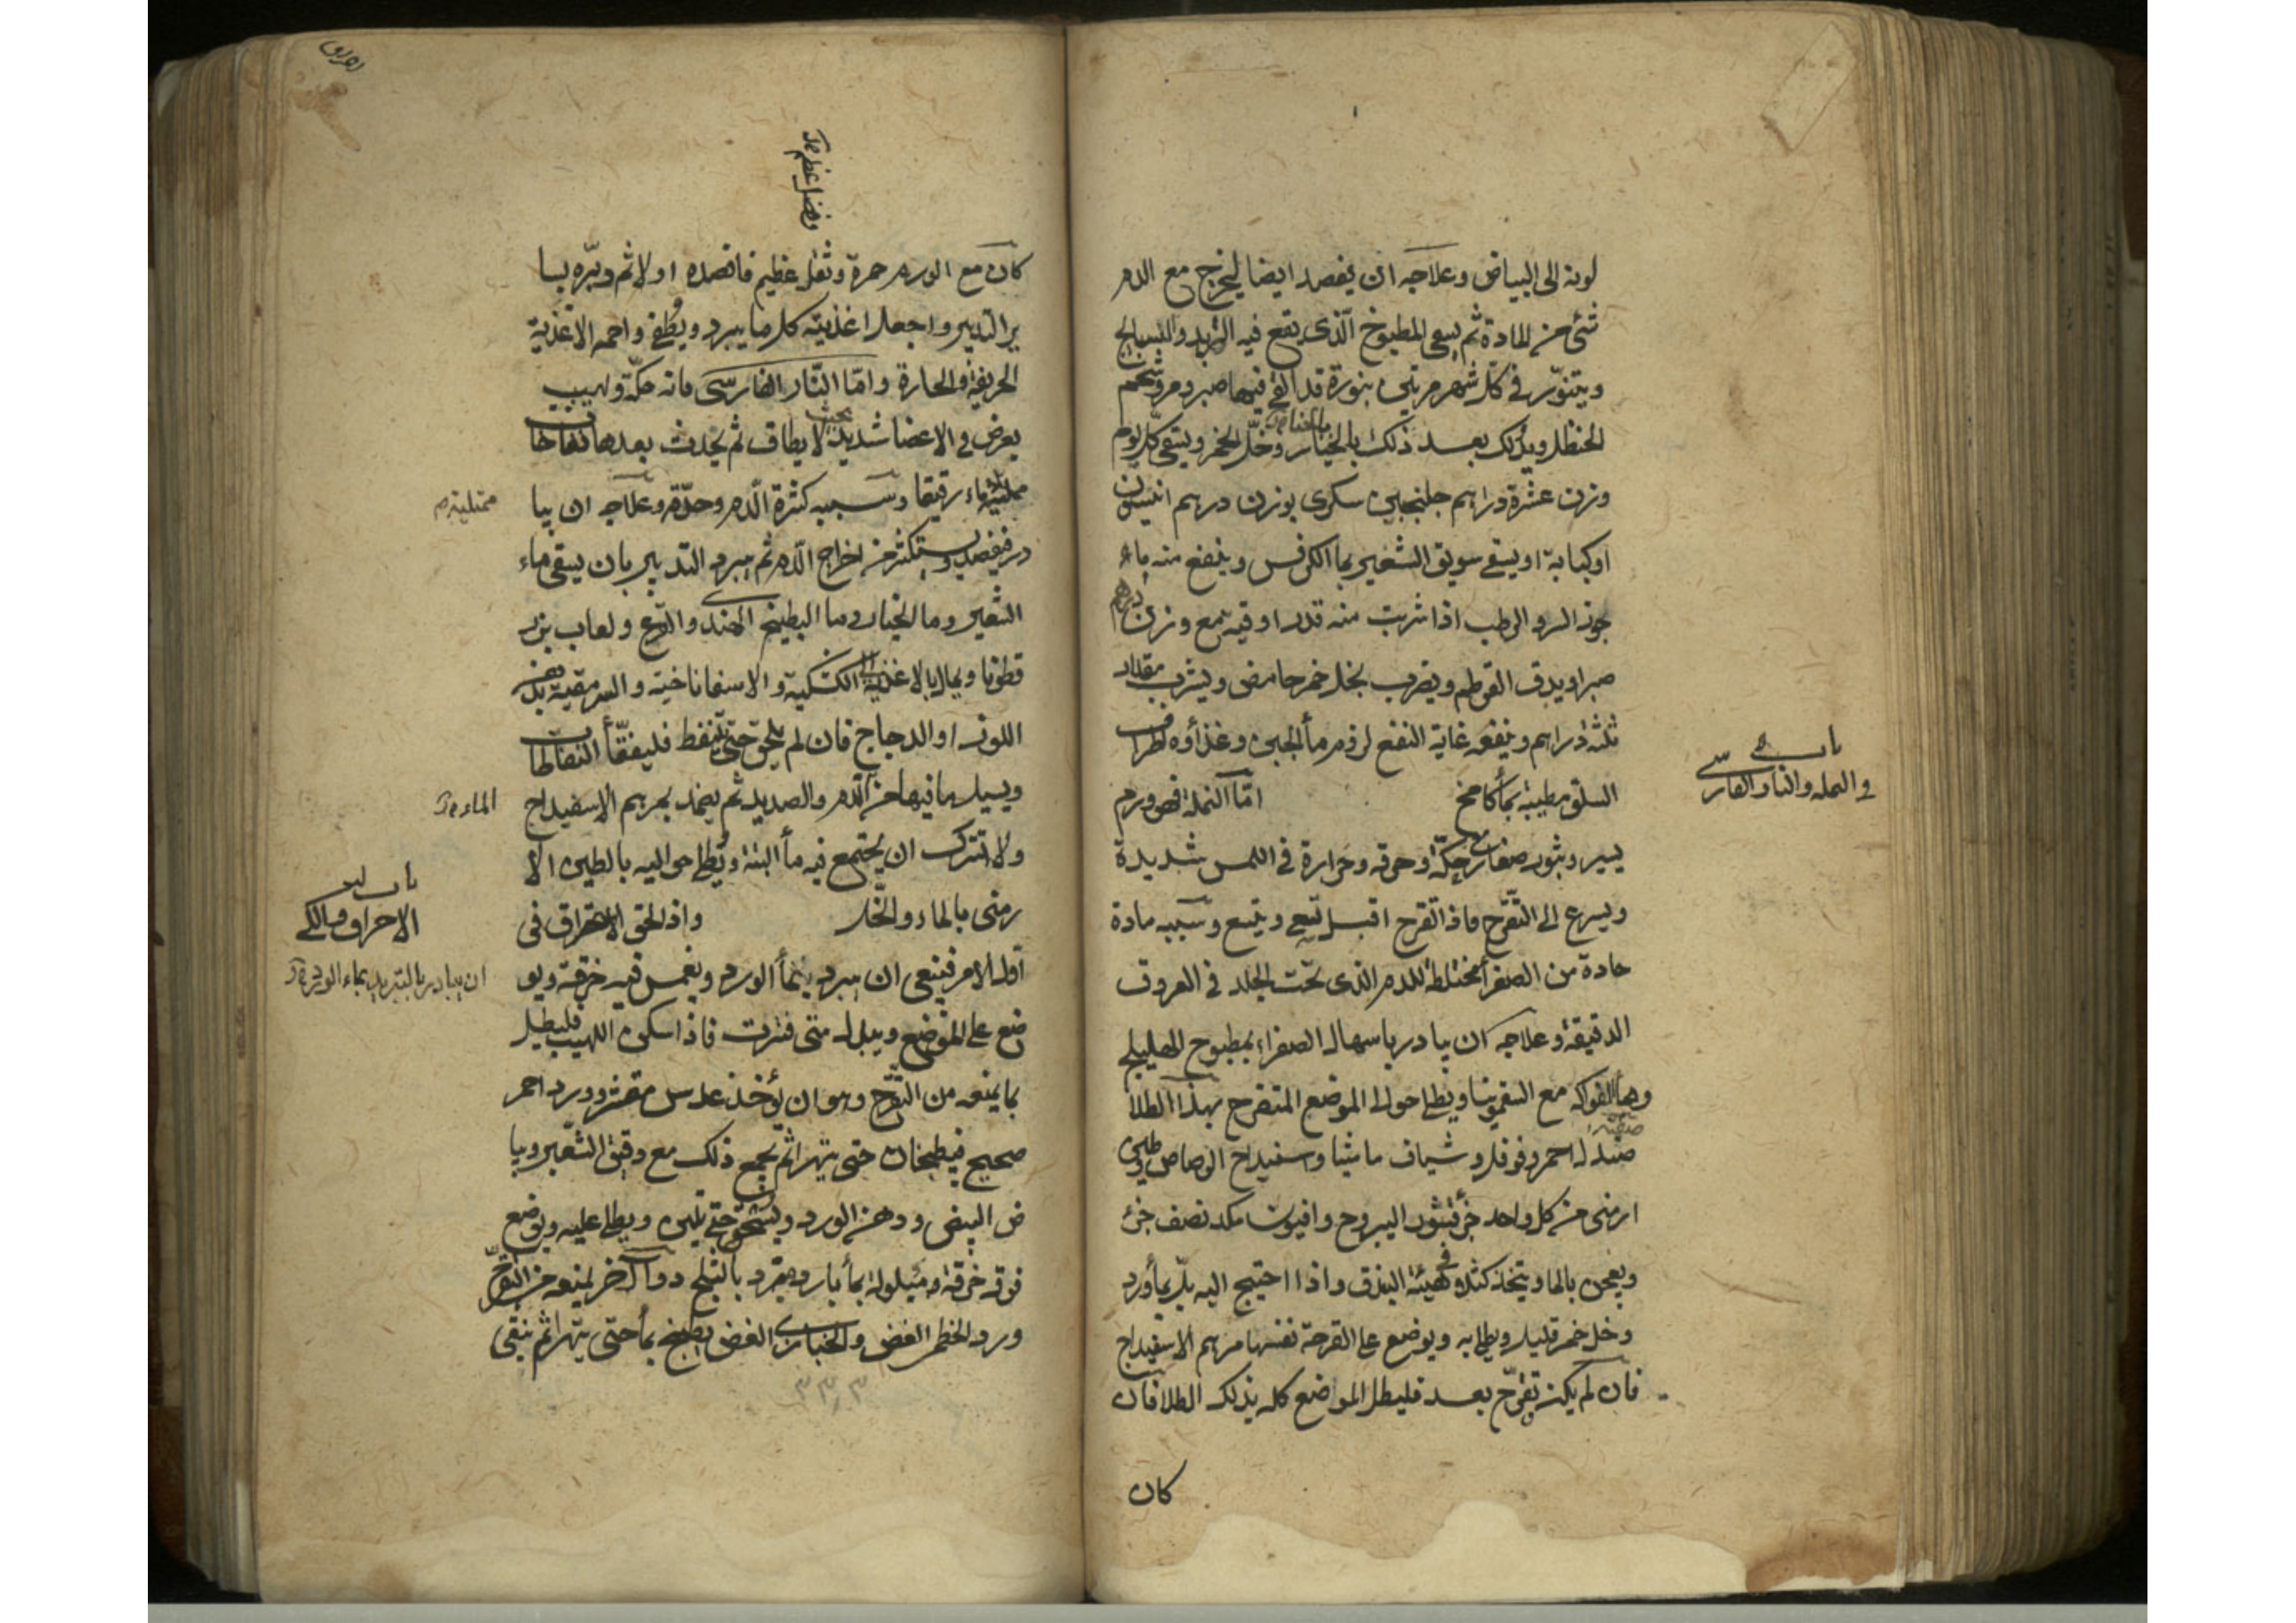 لونه الى البياض وعلاجه ان يفصد ايضا ليخرج مع الدم
شئ من المادة ثم يسقى المطبوخ الذى يقع فيه التربد والبسبايج
ويتنور فى كل شهر مرتين بنورة قد القى فيها صبر ومر وشحم
الحنظل ويدلك بعد ذلك بالخيار وخل الخمر ويسقى كل يوم
وزن عشرة دراهم جلنجبين سكرى بوزن درهم انيسون
او كبابة او يسقى سويق الشعير بما الكرفس وينفع منه ماء
جوز السرو الرطب اذا شربت منه قدر اوقية مع وزن درهم
صبر او يدق القرطم ويضرب بخل خمر حامض ويشرب مقدار
ثلثة دراهم وينفعه غاية النفع لزوم مأ الجبن وغذاؤه اطراف
السلق مطيبة بمأ كامخ اما النملة فهى ورم
باب
فى النمله والنار الفارسى
يسير وبثور صغار مع حكة وحرقة وحرارة فى اللمس شديدة
ويسرع الى التقرح فاذا تقرح اقبل يسعى ويتسع وسببه مادة
حادة من الصفرأ مختلطة للدم الذى تحت الجلد فى العروق
الدقيقة وعلاجه ان يبادر باسهال الصفراء بمطبوخ الهليلج
ومأ الفواكه مع السقمونيا ويطلى حوالى الموضع المتقرح بهذا الطلا
صفته
صندل احمر وفوفل وشياف ماميثا واسفيداج الرصاص وطين
ارمنى من كل واحد جزء قشور اليبروح وافيون مكد نصف جزء
ويعجن بالماء ويتخذ كتلا فى هيئة البندق واذا احتيج اليه بل بمأ ورد
وخل خمر قليل ويطلى به ويوضع على القرحة نفسها مرهم الاسفيداج
فان لم يكن تقرح بعد فليطل المواضع كله بذلك الطلا فان
كان
وفضل عظم
كان مع الورم حمرة وثقل عظيم فافصده اولا ثم دبره بسا
ير التدبير واجعل اغذيته كل ما يبرد ويطفى واحمه الاغذية
الحريفة والحارة واما النار الفارسى فانه حكة ولهيب
يعرض فى الاعضا شديد بحيث لا يطاق ثم يحدث بعدها نفاخات
ممتلئة ماء رقيقا وسببه كثرة الدم وحدته وعلاجه ان يبا
ممتلية
در فيفصد ويستكثر من اخراج الدم ثم يبرد التدبير بان يسقى ماء
الشعير وما الخيار وما البطيخ الهندى والقرع ولعاب بزر
قطونا ويمال بالاغذية الى الكشكية والاسفاناخية والسرمقية بدهن
اللوز او الدجاج فان لم يلحق حتى تنفط فليفقأ النفاطات
ويسيل ما فيها من الدم والصديد ثم يضمد بمرهم الاسفيداج
الماء
ولا تترك ان يجتمع فيه مأ البتة ويطلى حواليه بالطين الا
رمنى بالماء والخل واذا لحق الاحتراق فى
باب
الاحراق والكى
اول الامر فينبغى ان يبرد بمأ الورد ويغمس فيه خرقة ويو
ان يبادر بالتبريد بماء الورد
ضع على الموضع ويبدل متى فترت فاذا سكن اللهيب فليطل
بما يمنعه من التقرح وهو ان يؤخذ عدس مقشر وورد احمر
صحيح فيطبخان حتى يتهرا ثم يجمع ذلك مع دقيق الشعير وبيا
ض البيض ودهن الورد ويسحق حتى يلين ويطلى عليه ويوضع
فوقه خرقة مبلولة بمأ بارد مبرد بالثلج دواء آخر يمنع من التقرح
ورد الخطمى الغض والخبازى الغض يطبخ بمأ حتى يتهرا ثم ينقى